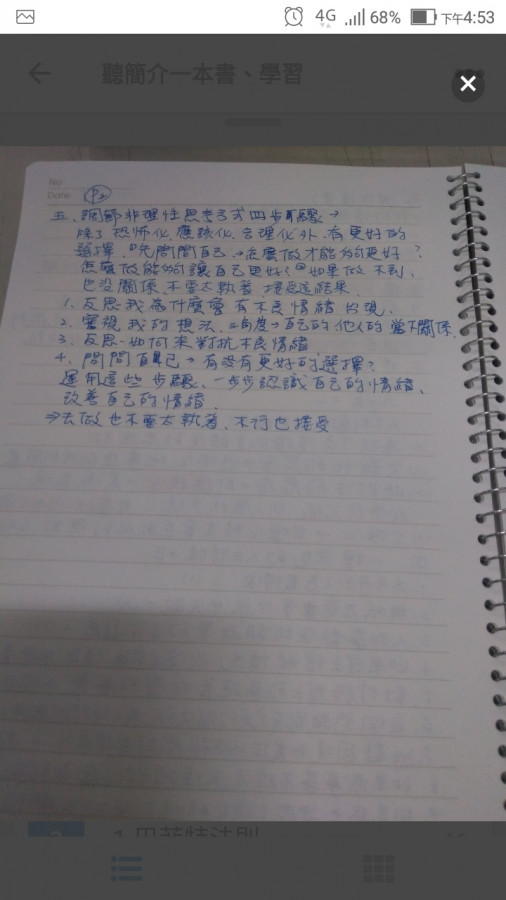 4G 68% 下午4:53
聽簡介一本書、學習
No
Date P2
五、調節非理性思考方式四步驟→
除了恐怖化、應該化、合理化外、有更好的
選擇、"先問問自己→怎麼做才能夠更好?
怎麼做能夠讓自己更好?"如果做不到、
也沒關係、不要太執著、接受這結果、
1、反思我為什麼會有不良情緒出現、
2、審視我的想法、角度→自己的他人的當不關係、
3、反思-如何來對抗不良情緒
4、問問自己→有沒有更好的選擇?
運用這些步驟、一步步認識自己的情緒、
改善自己的情緒、
⇒去做也不要太執著、不行也接受